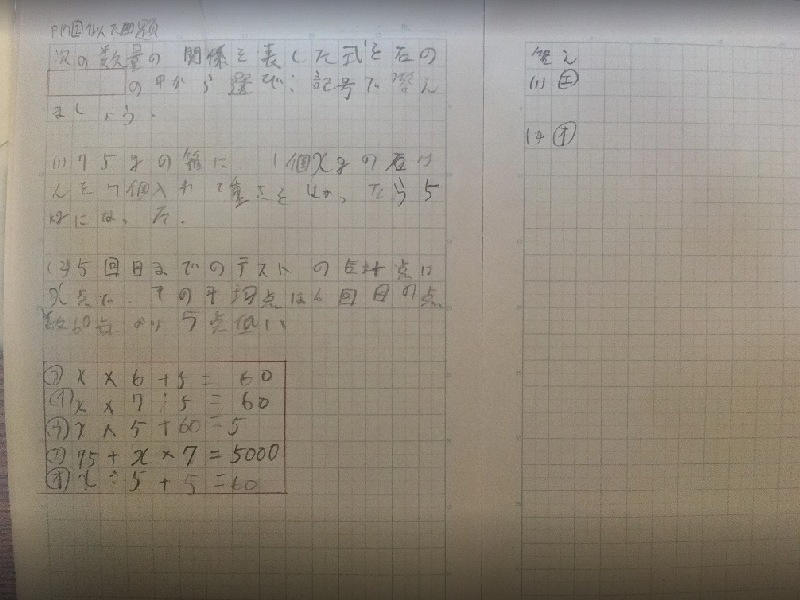 次の数量の関係を表した式を右の
の中から選び、記号で答え
ましょう。
(1) 75gの箱に、1個xgの石け
んを7個入れて重さをはかったら5
kgになった。
(2) 5回目までのテストの合計点は
x点で、その平均点は6回目の点
数60点より5点低い
㋐ x × 6 + 5 = 60
㋑ x × 7 ÷ 5 = 60
㋒ x × 5 + 60 = 5
㋓ 75 + x × 7 = 5000
㋔ x ÷ 5 + 5 = 60
答え
(1) ㋓
(2) ㋔